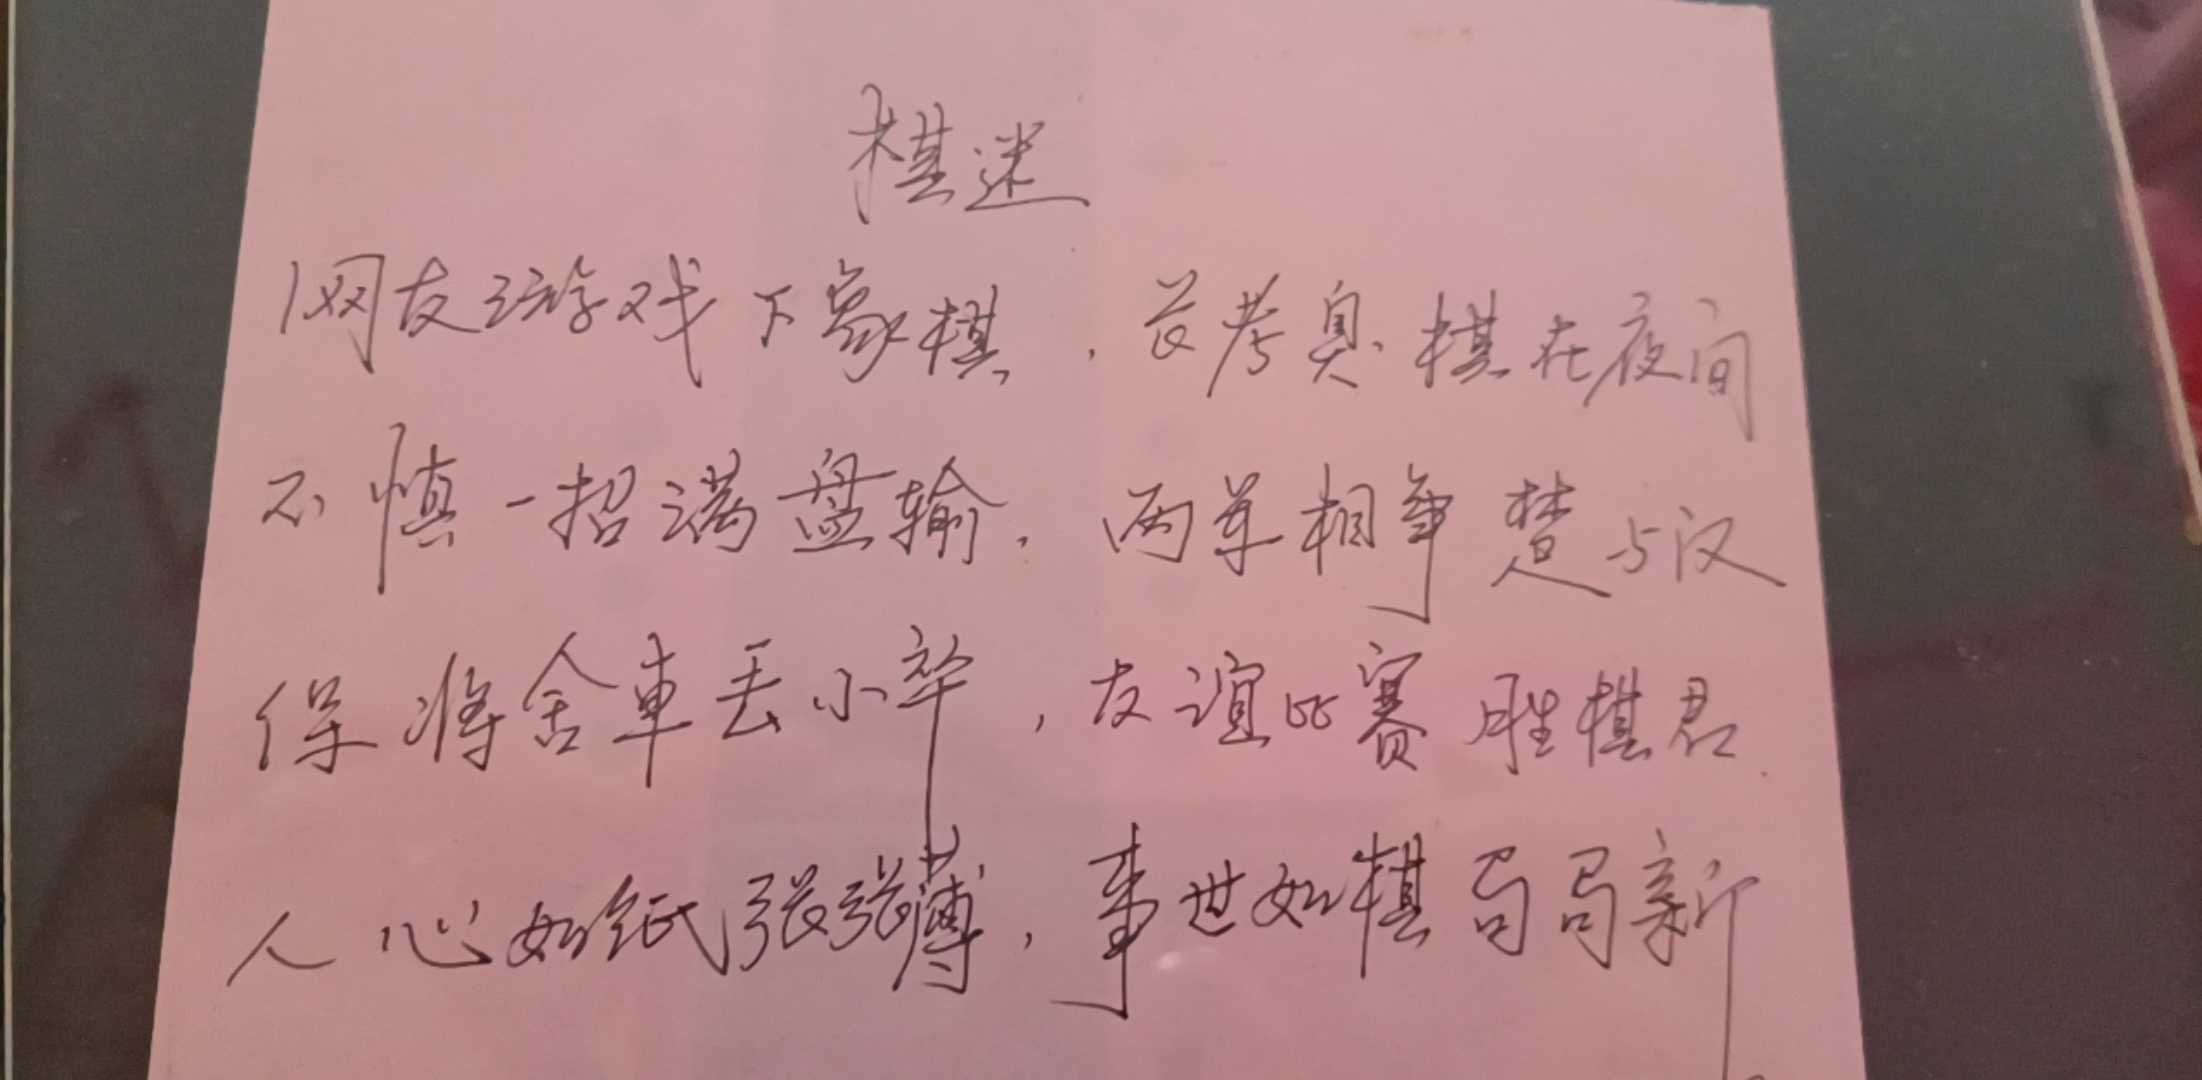 棋迷
网友游戏下象棋，长考臭棋在夜间
不慎一招满盘输，两军相争楚与汉
保将舍車丢小卒，友谊比赛胜棋君.
人心如纸张张薄，事世如棋局局新